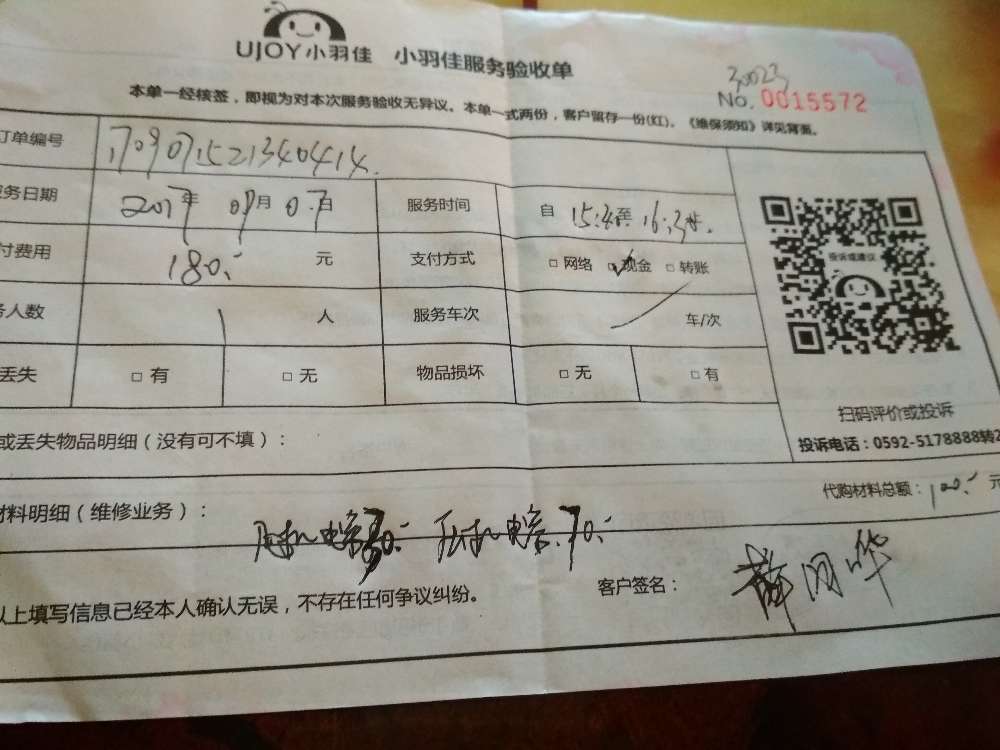 UJOY小羽佳 小羽佳服务验收单
30023
No. 0015572
本单一经核签，即视为对本次服务验收无异议。本单一式两份，客户留存一份(红)。《维保须知》详见背面。
订单编号 1709071521340414
务日期 2017年 09月 07日 服务时间 自 15:30至 16:30
付费用 180 元 支付方式 □ 网络 ☑ 现金 □ 转账
务人数 1 人 服务车次 / 车/次
丢失 □ 有 □ 无 物品损坏 □ 无 □ 有
投诉或建议
扫码评价或投诉
投诉电话：0592-5178888转2
或丢失物品明细（没有可不填）：
代购材料总额：100 元
材料明细（维修业务）：
30 70
以上填写信息已经本人确认无误，不存在任何争议纠纷。
客户签名：